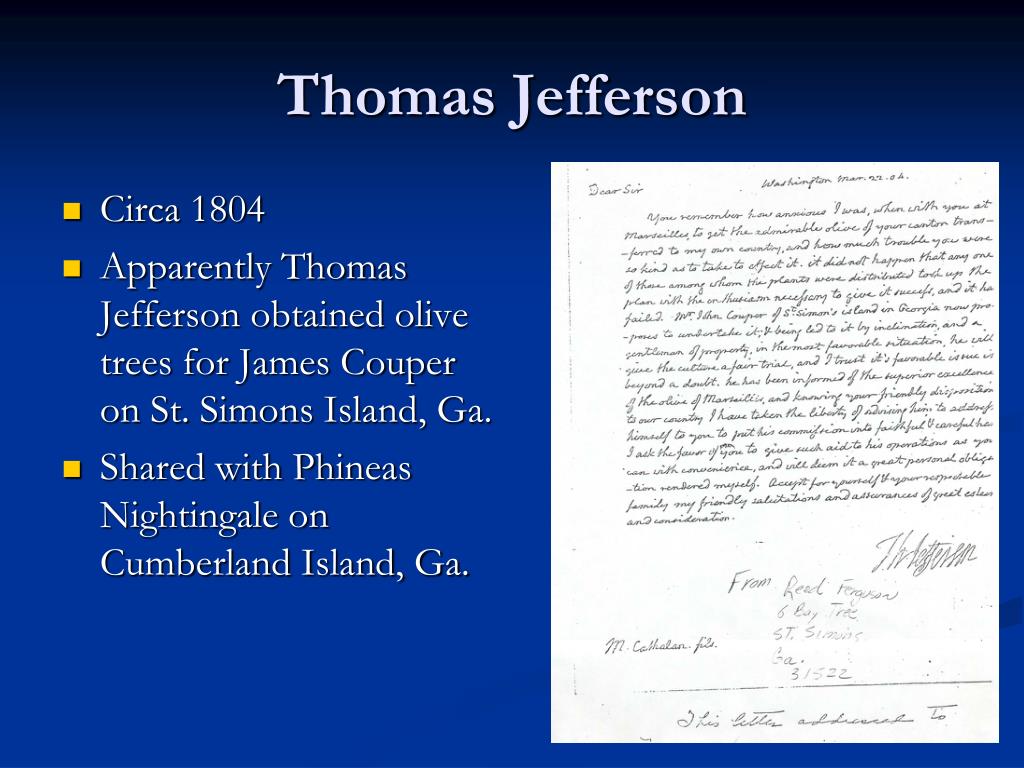 Thomas Jefferson
Circa 1804
Apparently Thomas
Jefferson obtained olive
trees for James Couper
on St. Simons Island, Ga.
Shared with Phineas
Nightingale on
Cumberland Island, Ga.
Washington Mar. 22. 04.
Dear Sir
You remember how anxious I was, when with you at
Marseilles, to get the admirable olive of your canton trans-
-ferred to my own country, and how much trouble you were
so kind as to take to effect it. it did not happen that any one
of those among whom the plants were distributed took up the
plan with the enthusiasm necessary to give it success, and it ha
failed. Mr. John Couper of St. Simon's island in Georgia now pro-
-poses to undertake it, & being led to it by inclination, and a
gentleman of property, in the most favorable situation, he will
give the culture a fair trial, and I trust it's favorable issue is
beyond a doubt. he has been informed of the superior excellence
of the olive of Marseilles, and knowing your friendly disposition
to our country I have taken the liberty of advising him to address
himself to you to put his commission into faithful & careful han
I ask the favor of you to give such aid to his operations as you
can with convenience, and will deem it a great personal obliga
-tion rendered myself. Accept for yourself & your respectable
family my friendly salutations and assurances of great esteem
and consideration.
Th: Jefferson
From Reed Ferguson
6 Bay Tree
ST. Simons
Ga.
31522
M. Cathalan. fils.
This letter addressed to